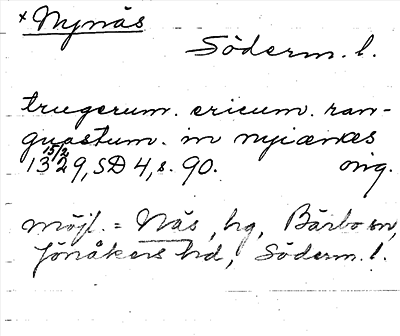 × Nynäs
Söderm. l.
trugerum. ericum. ran-
guastum. in nyiænæs
15/2
1329, SD 4, s. 90. orig.
Möjl. = Näs, hg, Bärbo sn,
Jönåkers hd, Söderm. l.